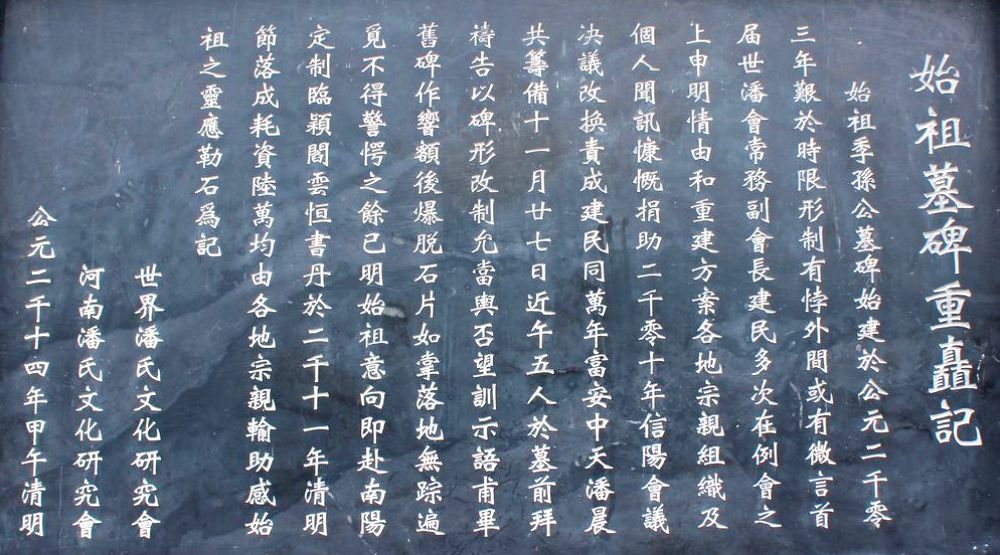 始祖墓碑重矗記
始祖季孫公墓碑始建於公元二千零
三年艱於時限形制有悖外間或有微言首
届世潘會常務副會長建民多次在例會之
上申明情由和重建方案各地宗親組織及
個人聞訊慷慨捐助二千零十年信陽會議
决議改换責成建民同萬年富安中天潘晨
共籌備十一月廿七日近午五人於墓前拜
禱告以碑形改制允當與否望訓示語甫畢
舊碑作響額後爆脱石片如掌落地無踪遍
覓不得警愕之餘已明始祖意向即赴南陽
定制臨潁閻雲恒書丹於二千十一年清明
節落成耗資陸萬均由各地宗親輸助感始
祖之靈應勒石爲記
世界潘氏文化研究會
河南潘氏文化研究會
公元二千十四年甲午清明